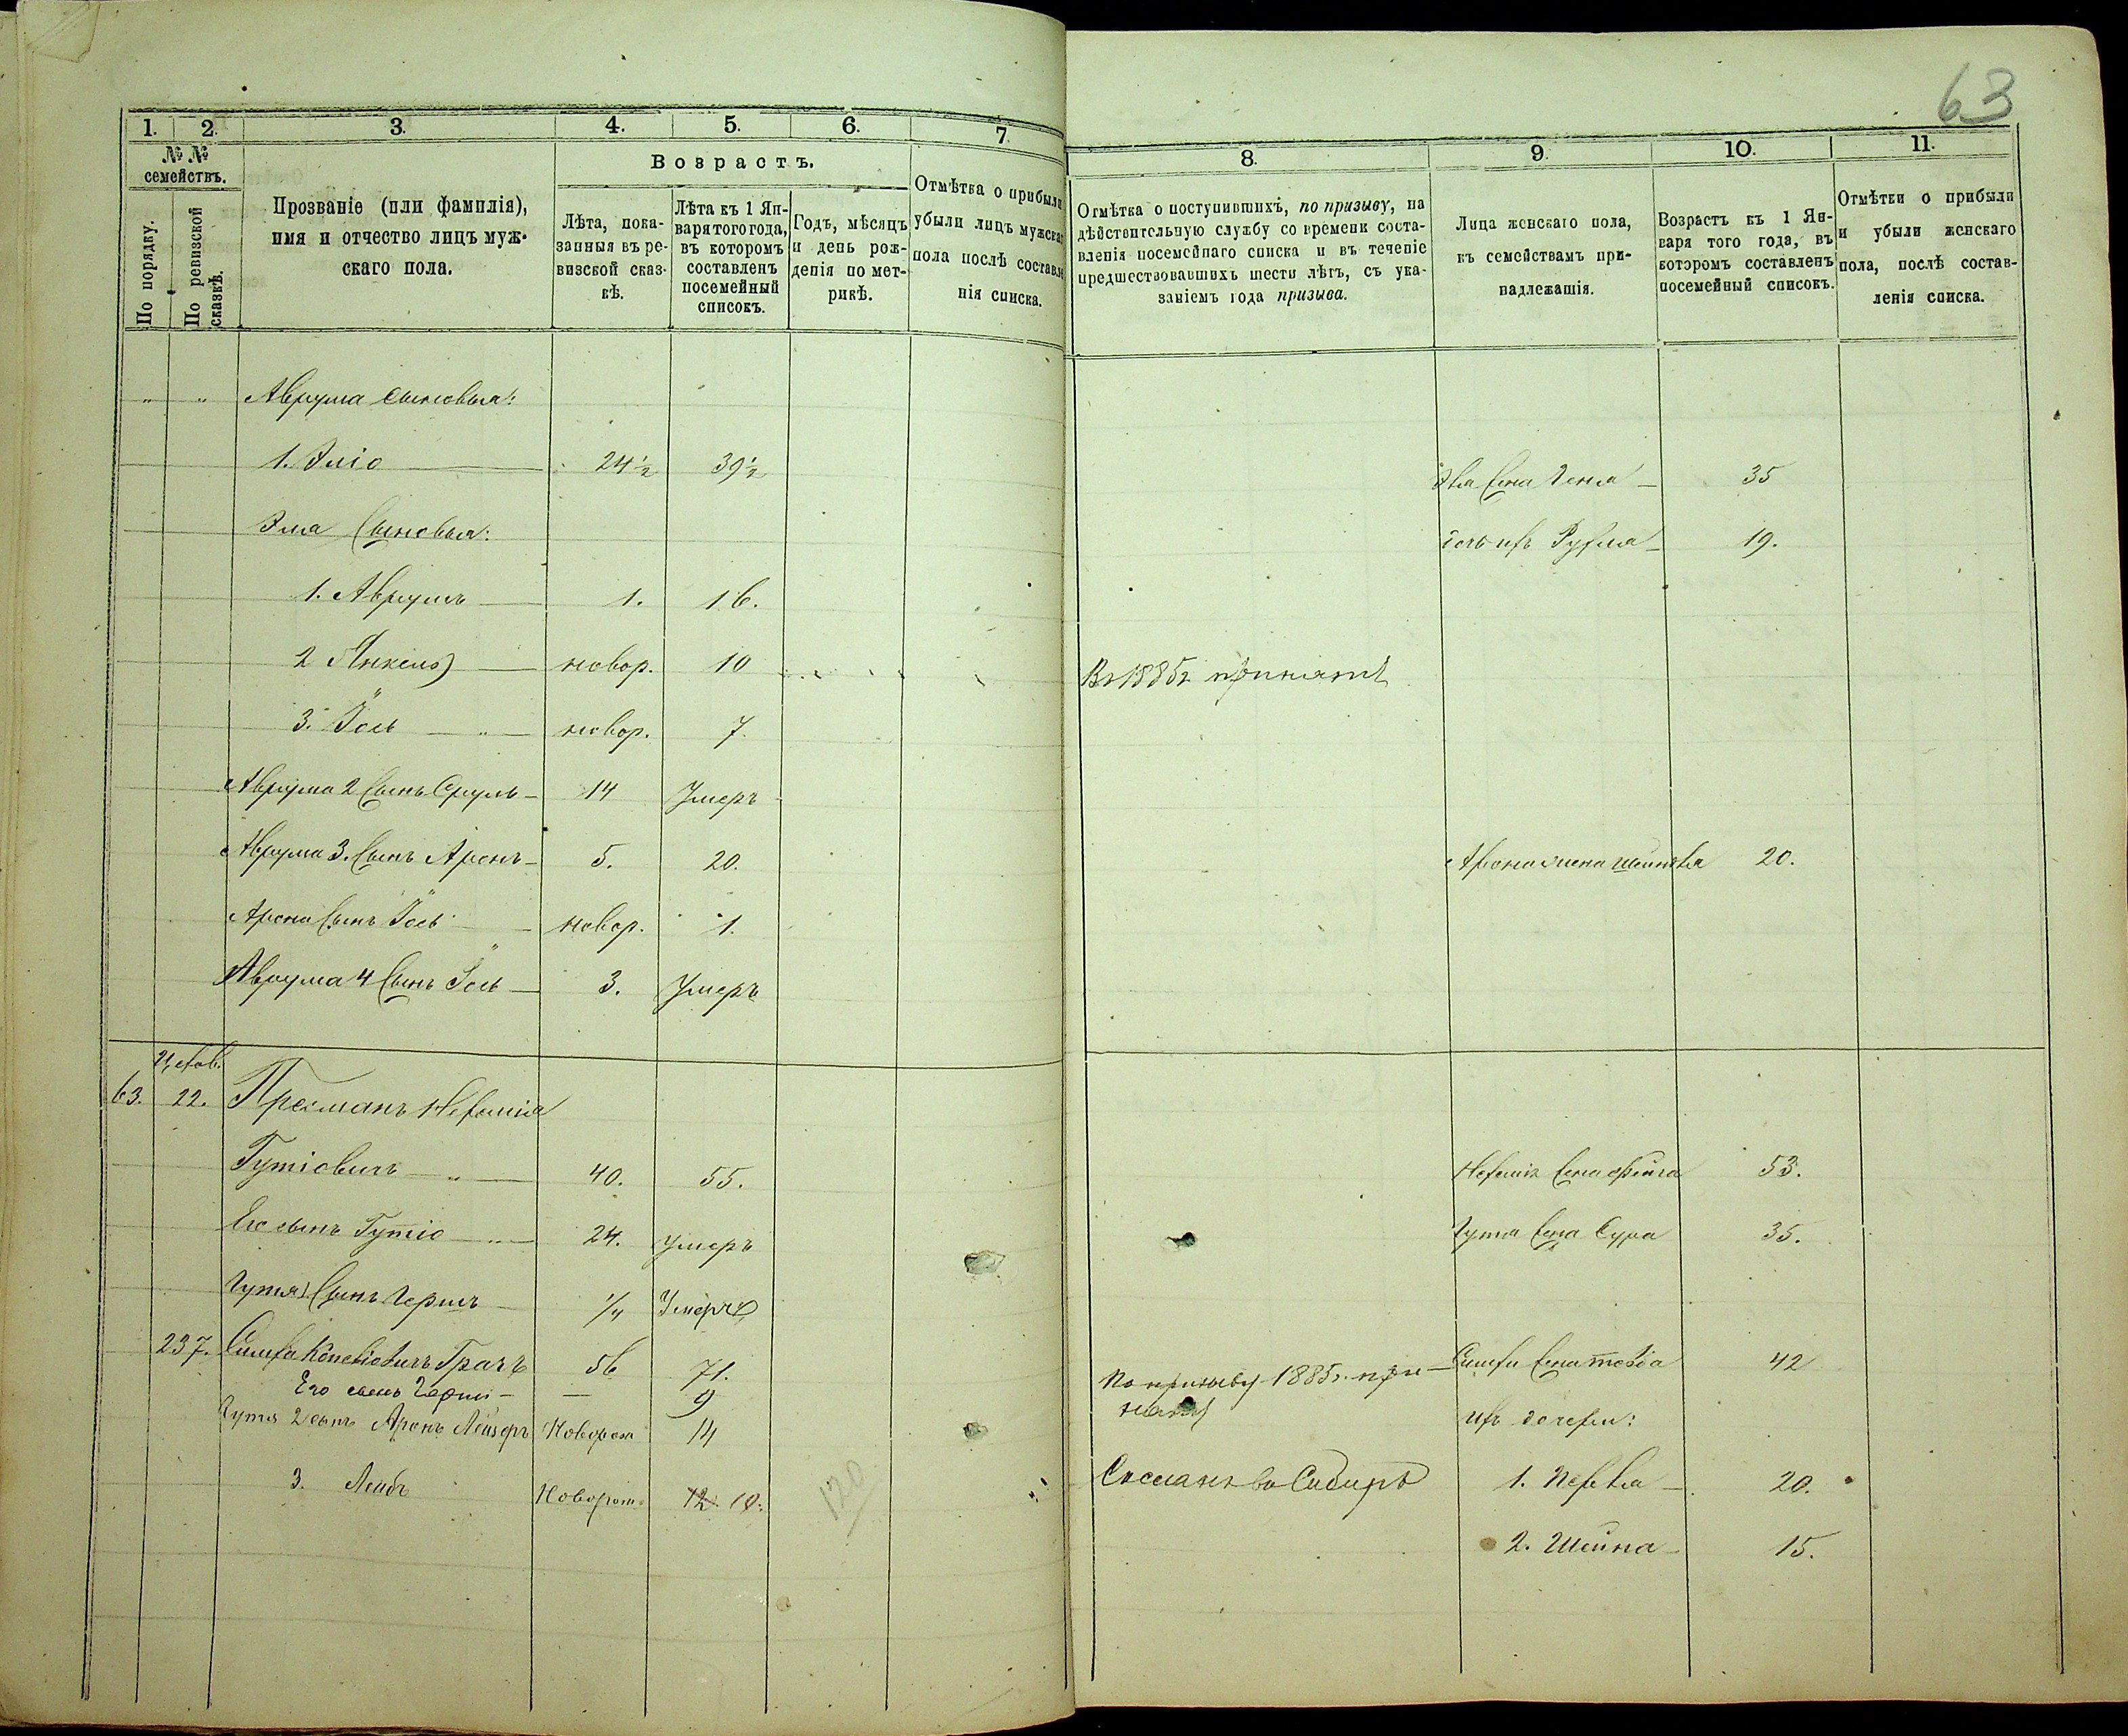 63
1. 2. 3. 4. 5. 6. 7.
№ №
семействъ.
По порядку.
По ревизской сказкѣ.
Прозваніе (или фамилія),
имя и отчество лицъ муж-
скаго пола.
Возрастъ.
Лѣта, пока-
занныя въ ре-
визской сказ-
кѣ.
Лѣта къ 1 Ян-
варя того года,
въ которомъ
составленъ
посемейный
списокъ.
Годъ, мѣсяцъ
и день рож-
денія по мет-
рикѣ.
Отмѣтка о прибыли
убыли лицъ мужска
пола послѣ составле
нія списка.
8. 9. 10. 11.
Отмѣтка о поступившихъ, по призыву, на
дѣйствительную службу со времени соста-
вленія посемейнаго списка и въ теченіе
предшествовавшихъ шести лѣтъ, съ ука-
заніемъ года призыва.
Лица женскаго пола,
къ семействамъ при-
надлежащія.
Возрастъ къ 1 Ян-
варя того года, въ
которомъ составленъ
посемейный списокъ.
Отмѣтки о прибыли
и убыли женскаго
пола, послѣ состав-
ленія списка.
" " Аврума сыновья:
1. Эліо 24½ 39½ 35
Эліа Сыновья: 19.
1. Аврумъ 1. 16.
2 Янкель новор. 10 Въ 1885 г. принятъ
3. Іось новор. 7
Аврума 2 Сынъ Сруль 14 Умеръ
Аврума 3. Сынъ Аронъ 5. 20. Арона жена 20.
Арона Сынъ Іось новор. 1.
Аврума 4 Сынъ Іось 3. Умеръ
63. 22. Нехемія
Гутіовичъ 40. 55. Нехемія 53.
Его сынъ Гутіо 24. умеръ Гутя Сура 35.
Гутя 1 Сынъ Гершъ ¼ Умеръ
237. Симха Грачъ 56 71. По призыву 1885 г. при- Симхи 42
Его сынъ Герш — — 9 нятъ
Гутя 2 сынъ Аронъ Лейзоръ Новорож 14 ихъ дочери:
3. Лейбъ Новорож. 12 10. 120 Сосланъ въ Сибирь 1. Перля 20.
2. Шейна 15.